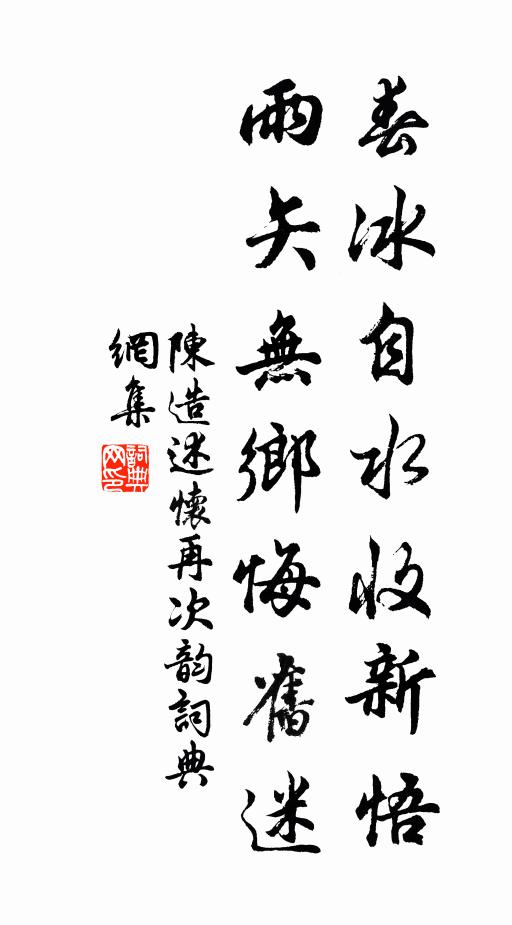 春冰自水收新悟
雨矢無鄉悔舊迷
陳造述懷再次韵詞典
網集
詞典
网印